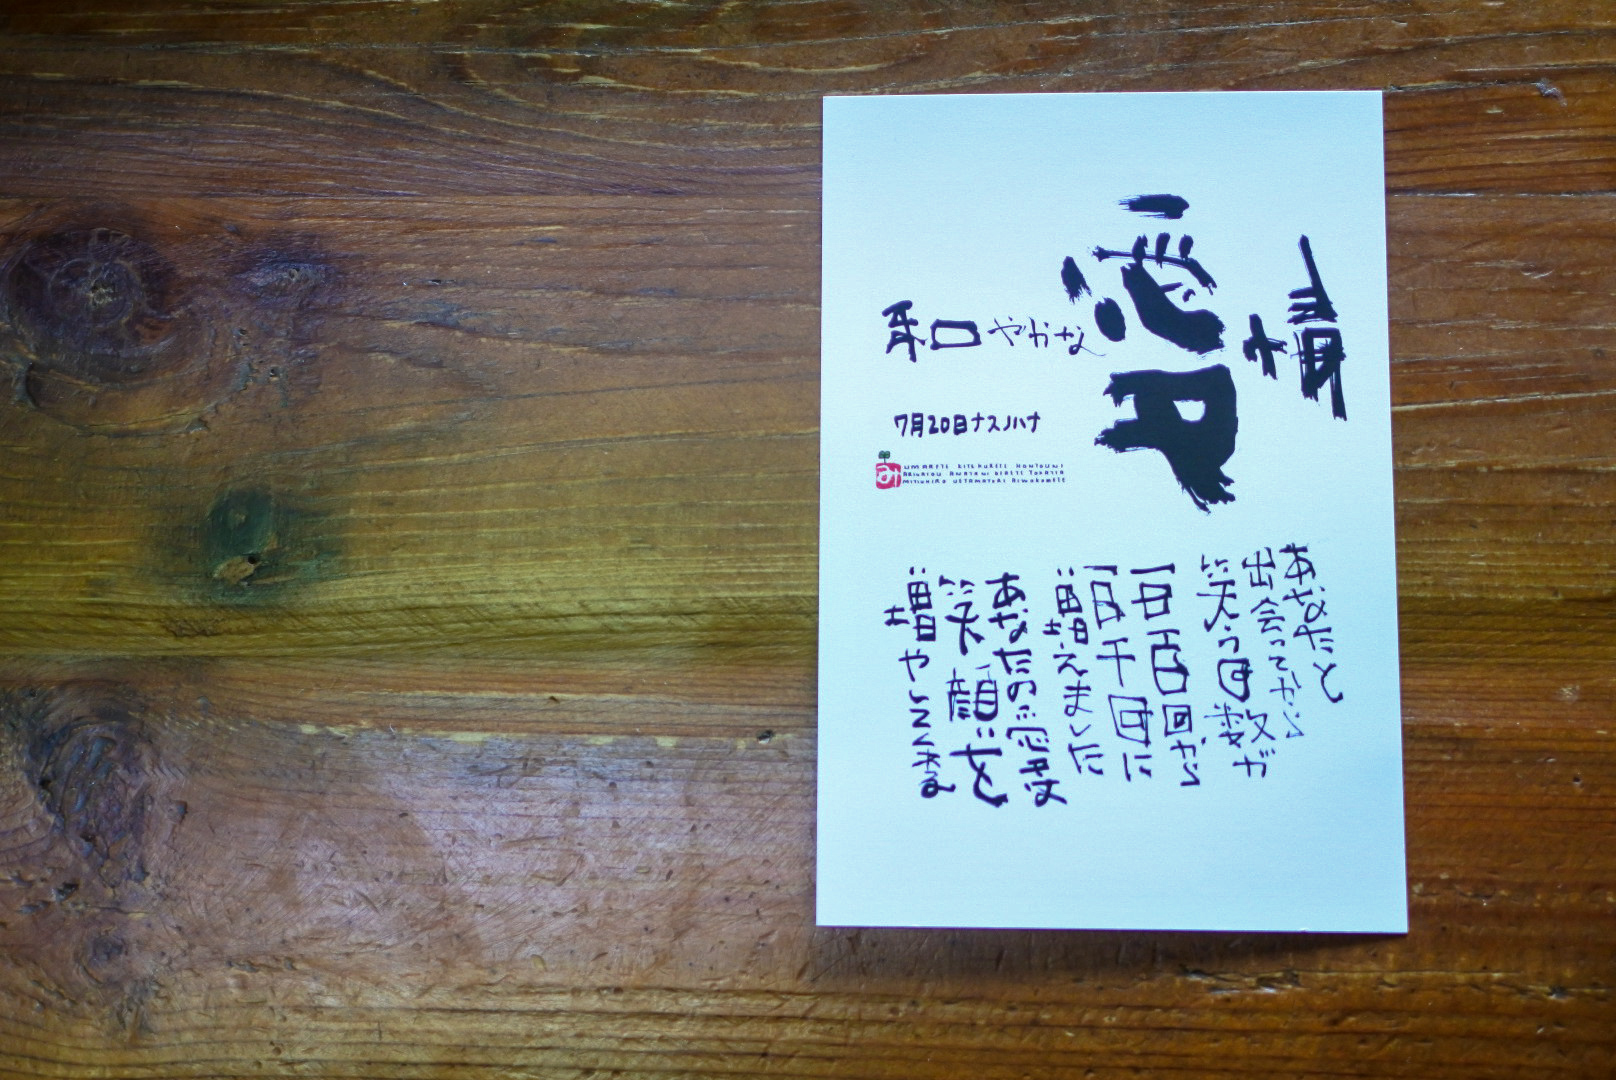 和やかな愛情
7月20日ナスノハナ
み
UMARETE KITEKURETE HONTOUNI
ARIGATOU ANATANI DEAETE YOKATTA
AIWOKOMETE
あなたと
出会ってから
笑う回数が
一日百回から
一日千回に
増えました
あなたの愛は
笑顔を
増やしてくれる